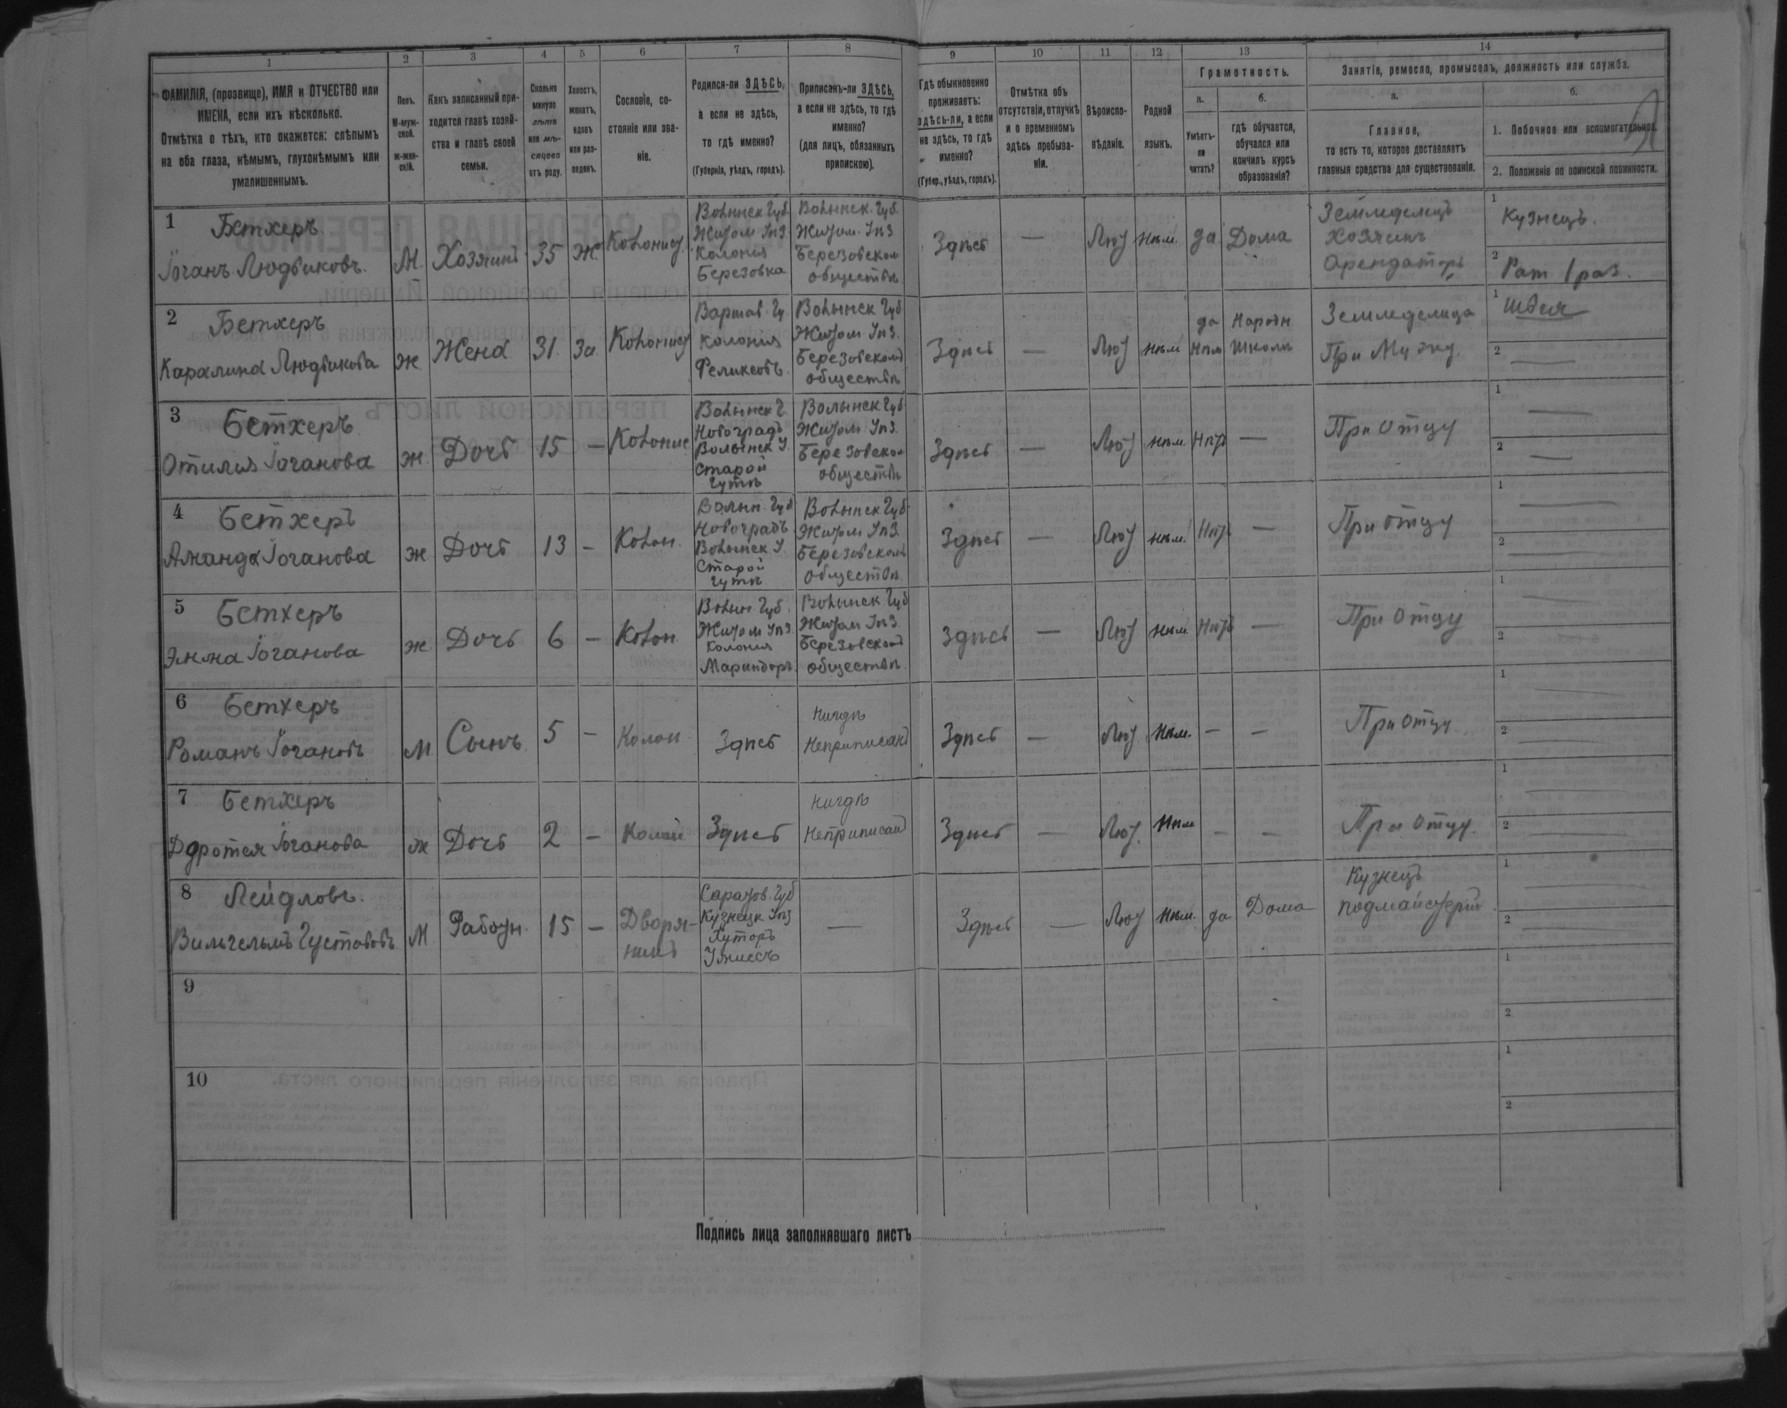 1 2 3 4 5 6 7 8 9 10 11 12 13 14
ФАМИЛІЯ, (прозвище), ИМЯ и ОТЧЕСТВО или
ИМЕНА, если ихъ нѣсколько.
Отмѣтка о тѣхъ, кто окажется: слѣпымъ
на оба глаза, нѣмымъ, глухонѣмымъ или
умалишеннымъ.
Полъ.
М-муж-
ской.
ж-жен-
скій.
Какъ записанный при-
ходится главѣ хозяй-
ства и главѣ своей
семьи.
Сколько
минуло
лѣтъ
или мѣ-
сяцевъ
отъ роду.
Холостъ,
женатъ,
вдовъ
или раз-
веденъ.
Сословіе, со-
стояніе или зва-
ніе.
Родился-ли ЗДѢСЬ,
а если не здѣсь,
то гдѣ именно?
(Губернія, уѣздъ, городъ).
Приписанъ-ли ЗДѢСЬ,
а если не здѣсь, то гдѣ
именно?
(для лицъ, обязанныхъ
припискою).
Гдѣ обыкновенно
проживаетъ:
здѣсь-ли, а если
не здѣсь, то гдѣ
именно?
(Губер., уѣздъ, городъ).
Отмѣтка объ
отсутствіи, отлучкѣ
и о временномъ
здѣсь пребыва-
ніи.
Вѣроиспо-
вѣданіе.
Родной
языкъ.
Грамотность.
а.
Умѣетъ-
ли
читать?
б.
гдѣ обучается,
обучался или
кончилъ курсъ
образованія?
Занятіе, ремесло, промыселъ, должность или служба.
а.
Главное,
то есть то, которое доставляетъ
главныя средства для существованія.
б.
1. Побочное или вспомогательное.
2. Положеніе по воинской повинности.
1
Бетхеръ
Іоганъ Людвиковъ.
М.
Хозяинъ
35
Ж
Колонист
Волынск Губ
Житом Уѣз
Колонія
Березовка
Волынск. Губ.
Житом. Уѣз
Березовском
обществѣ
Здѣсь
—
Лют
нѣм.
да
Дома
Земледелецъ
Хозяинъ
Арендаторъ
1
Кузнецъ.
2
Рат 1 раз.
2
Бетхеръ
Каралина Людвикова
ж
Жена
31
За
Колонист
Варшав. Гу.
колонія
Феликсовъ.
Волынск Губ
Житом Уѣз.
Березовском
обществѣ
Здѣсь
—
Лют
нѣм
да
нѣм
Народн
школѣ
Земледелица
При Мужу.
1
Швея
2
—
3
Бетхеръ
Отилія Іоганова
ж
Дочь
15
—
Колонис
Волынск Г.
Новоградъ
Волынск У.
Старой
Гутѣ
Волынск Губ
Житом Уѣз.
Березовском
обществѣ
Здѣсь
—
Лют
нѣм
Нѣт
—
При отцу
1
—
2
—
4
Бетхеръ
Аманда Іоганова
ж
Дочь
13
—
Колон.
Волын. Губ
Новоградъ
Волынск У.
Старой
Гутѣ
Волынск Губ
Житом Уѣз
Березовском
обществѣ
Здѣсь
—
Лют
нѣм.
Нѣт
—
При отцу
1
—
2
—
5
Бетхеръ
Эмма Іоганова
ж
Дочь
6
—
Колон
Волын Губ.
Житом Уѣз
Колонія
Мариндоръ
Волынск Губ
Житом Уѣз.
Березовском
обществѣ.
Здѣсь
—
Лют
нѣм
Нѣтъ
—
При отцу
1
—
2
—
6
Бетхеръ
Романъ Іогановъ
М
Сынъ
5
—
Колон
Здѣсь
Нигдѣ
Неприписанъ
Здѣсь
—
Лют
нѣм.
—
—
При отцу.
1
—
2
—
7
Бетхеръ
Доротея Іоганова
ж
Дочь
2
—
Колон
Здѣсь
Нигдѣ
Неприписан
Здѣсь
—
Лют.
нѣм
—
—
При отцу.
1
—
2
—
8
Лейдловъ.
Вильгельмъ Густововъ
М
Рабочи.
15
—
Дворя-
нинъ
Саратов. Губ
Кузнецк Уѣз
Хуторъ
—
Здѣсь
—
Лют
нѣм.
да
Дома
Кузнецъ
подмайстерій
1
—
2
—
9
1
2
10
1
2
Подпись лица заполнявшаго листъ